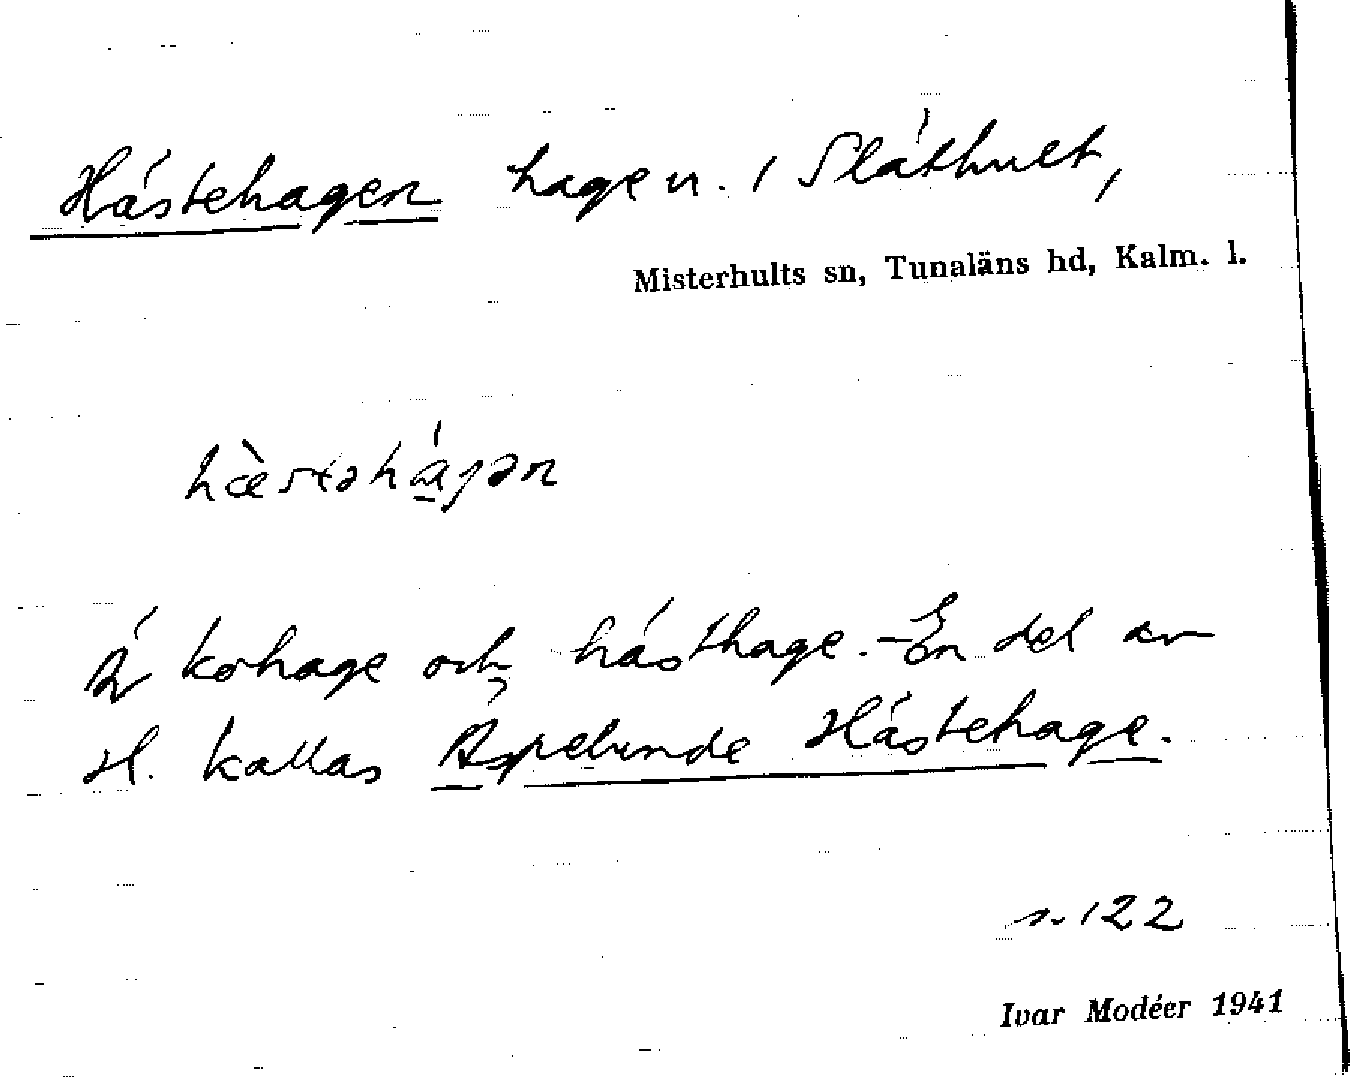 Hästehagen hage n. i Släthult,
Misterhults sn, Tunaläns hd, Kalm. l.
hæ̀stəhá̱gən
Är kohage och hästhage. – En del av
H. kallas Äspelunde Hästehage.
s. 122
Ivar Modéer 1941